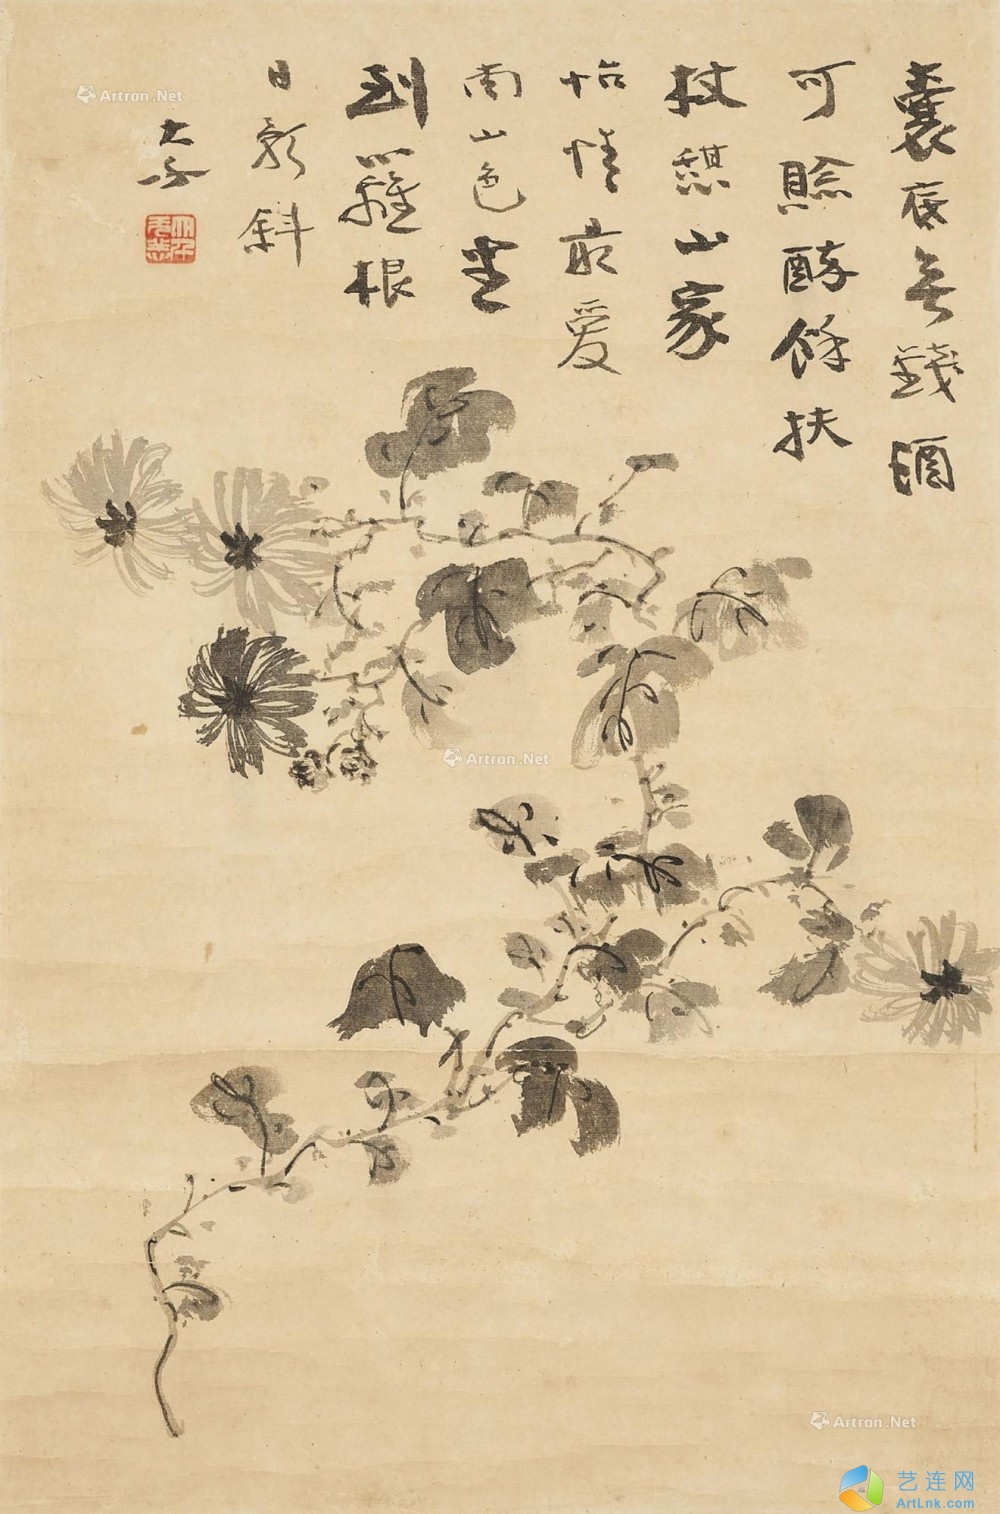 囊底無錢酒
可賒酵餘扶
杖憇山家
怡情最愛
南山色坐
到籬根
日影斜
大千
Artron.Net
Artron.Net
Artron.Net
艺连网
ArtLnk.com